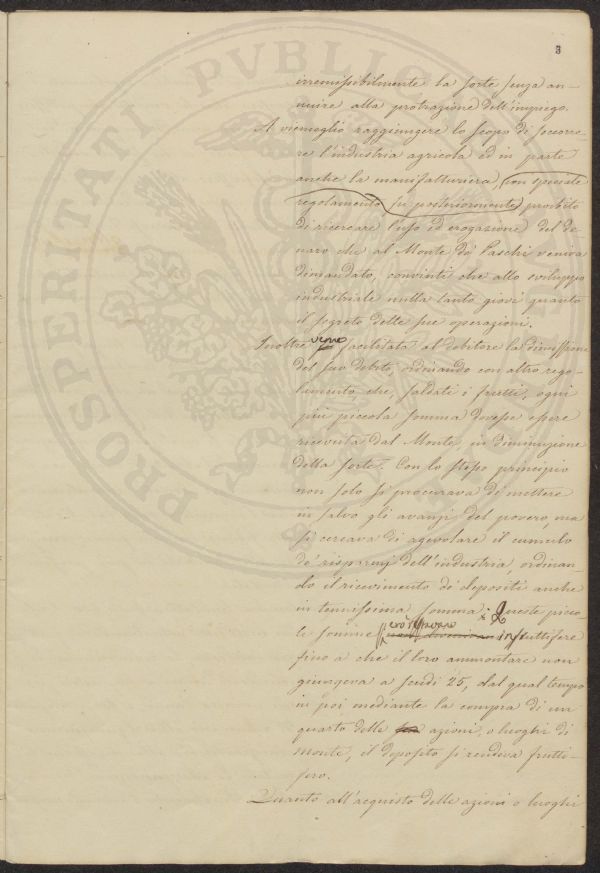 3
irremissibilmente la sorte senza an-
nuire alla protrazione dell'impiego.
A viemeglio raggiungere lo scopo di soccorre-
re l'industria agricola ed in parte
anche la manifatturiera, con speciale
regolamento, fu posteriormente proibito
di ricercare l'uso ed erogazione del de
naro che al Monte de' Paschi veniva
dimandato, convinti che allo sviluppo
industriale nulla tanto giovi quanto
il segreto delle sue operazioni.
Inoltre venne facilitata al debitore la dimissione
del suo debito, ordinando con altro rego-
lamento, che, saldati i frutti, ogni
più piccola somma dovesse essere
ricevuta dal Monte, in diminuzione
della sorte. Con lo stesso principio
non solo si procurava di mettere
in salvo gli avanzi del povero, ma
si cercava di agevolare il cumulo
de' risparmj dell'industria, ordinan-
do il ricevimento de' depositi anche
in tenuissima somma: Queste picco-
le somme però restavano infruttifere
fino a che il loro ammontare non
giungeva a scudi 25, dal qual tempo
in poi mediante la compra di un
quarto delle azioni, o luoghi di
monte, il deposito si rendeva frutti-
fero.
Quanto all'acquisto delle azioni o luoghi
PROSPERITATI PVBLICAE